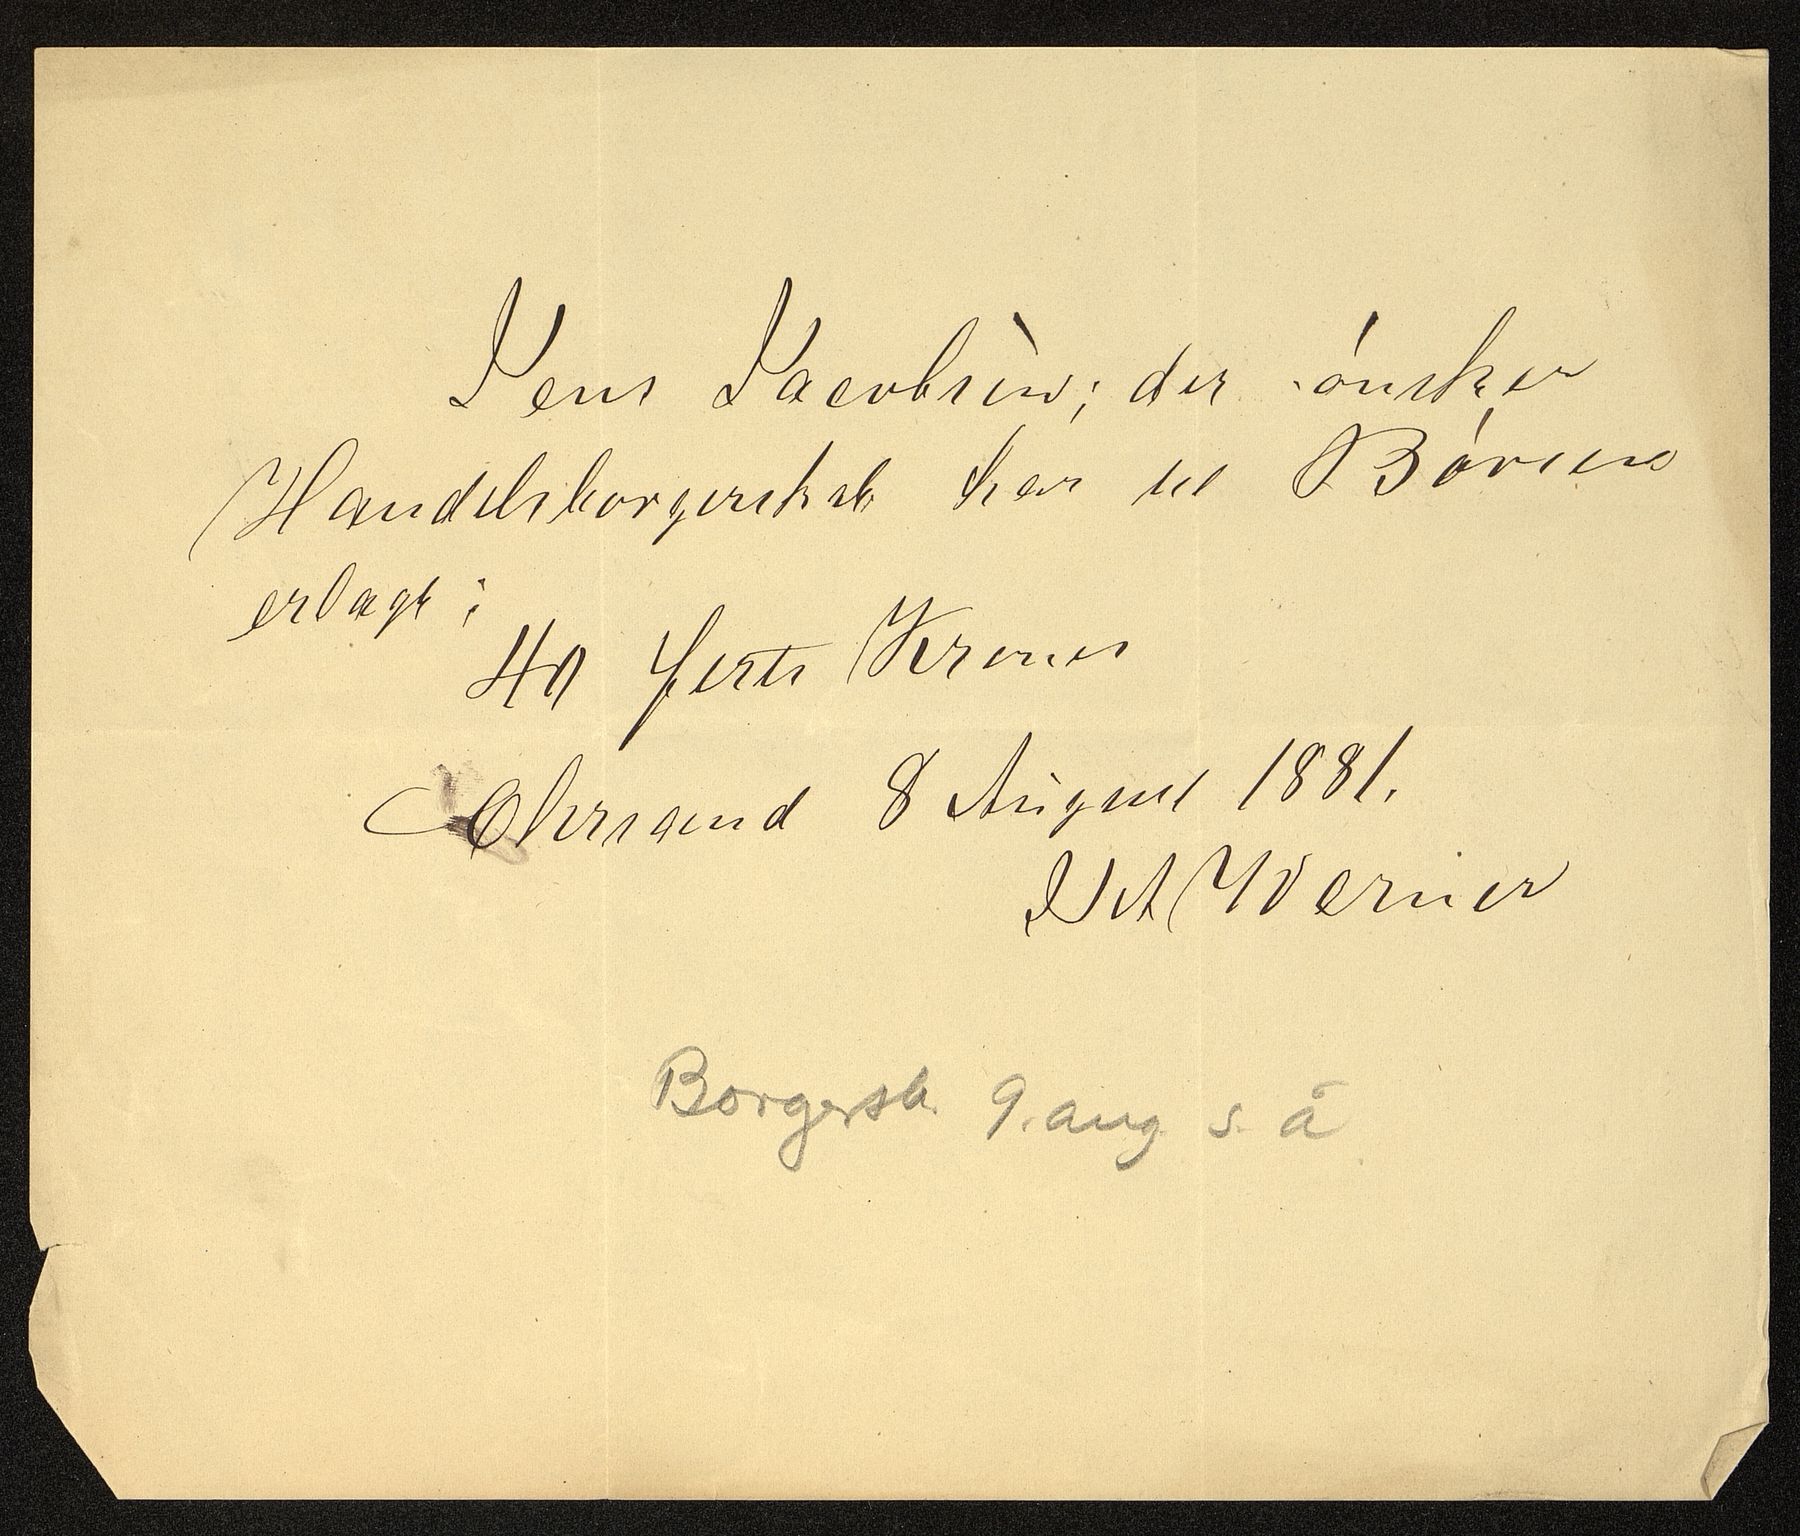 Jens Jacobsen, der ønsker
Handelsborgerskab har til Børsen
erlagt:
40 førti Kroner
Chrsand 8 August 1881.
N A Werner
Borgersk. 9. aug s. å